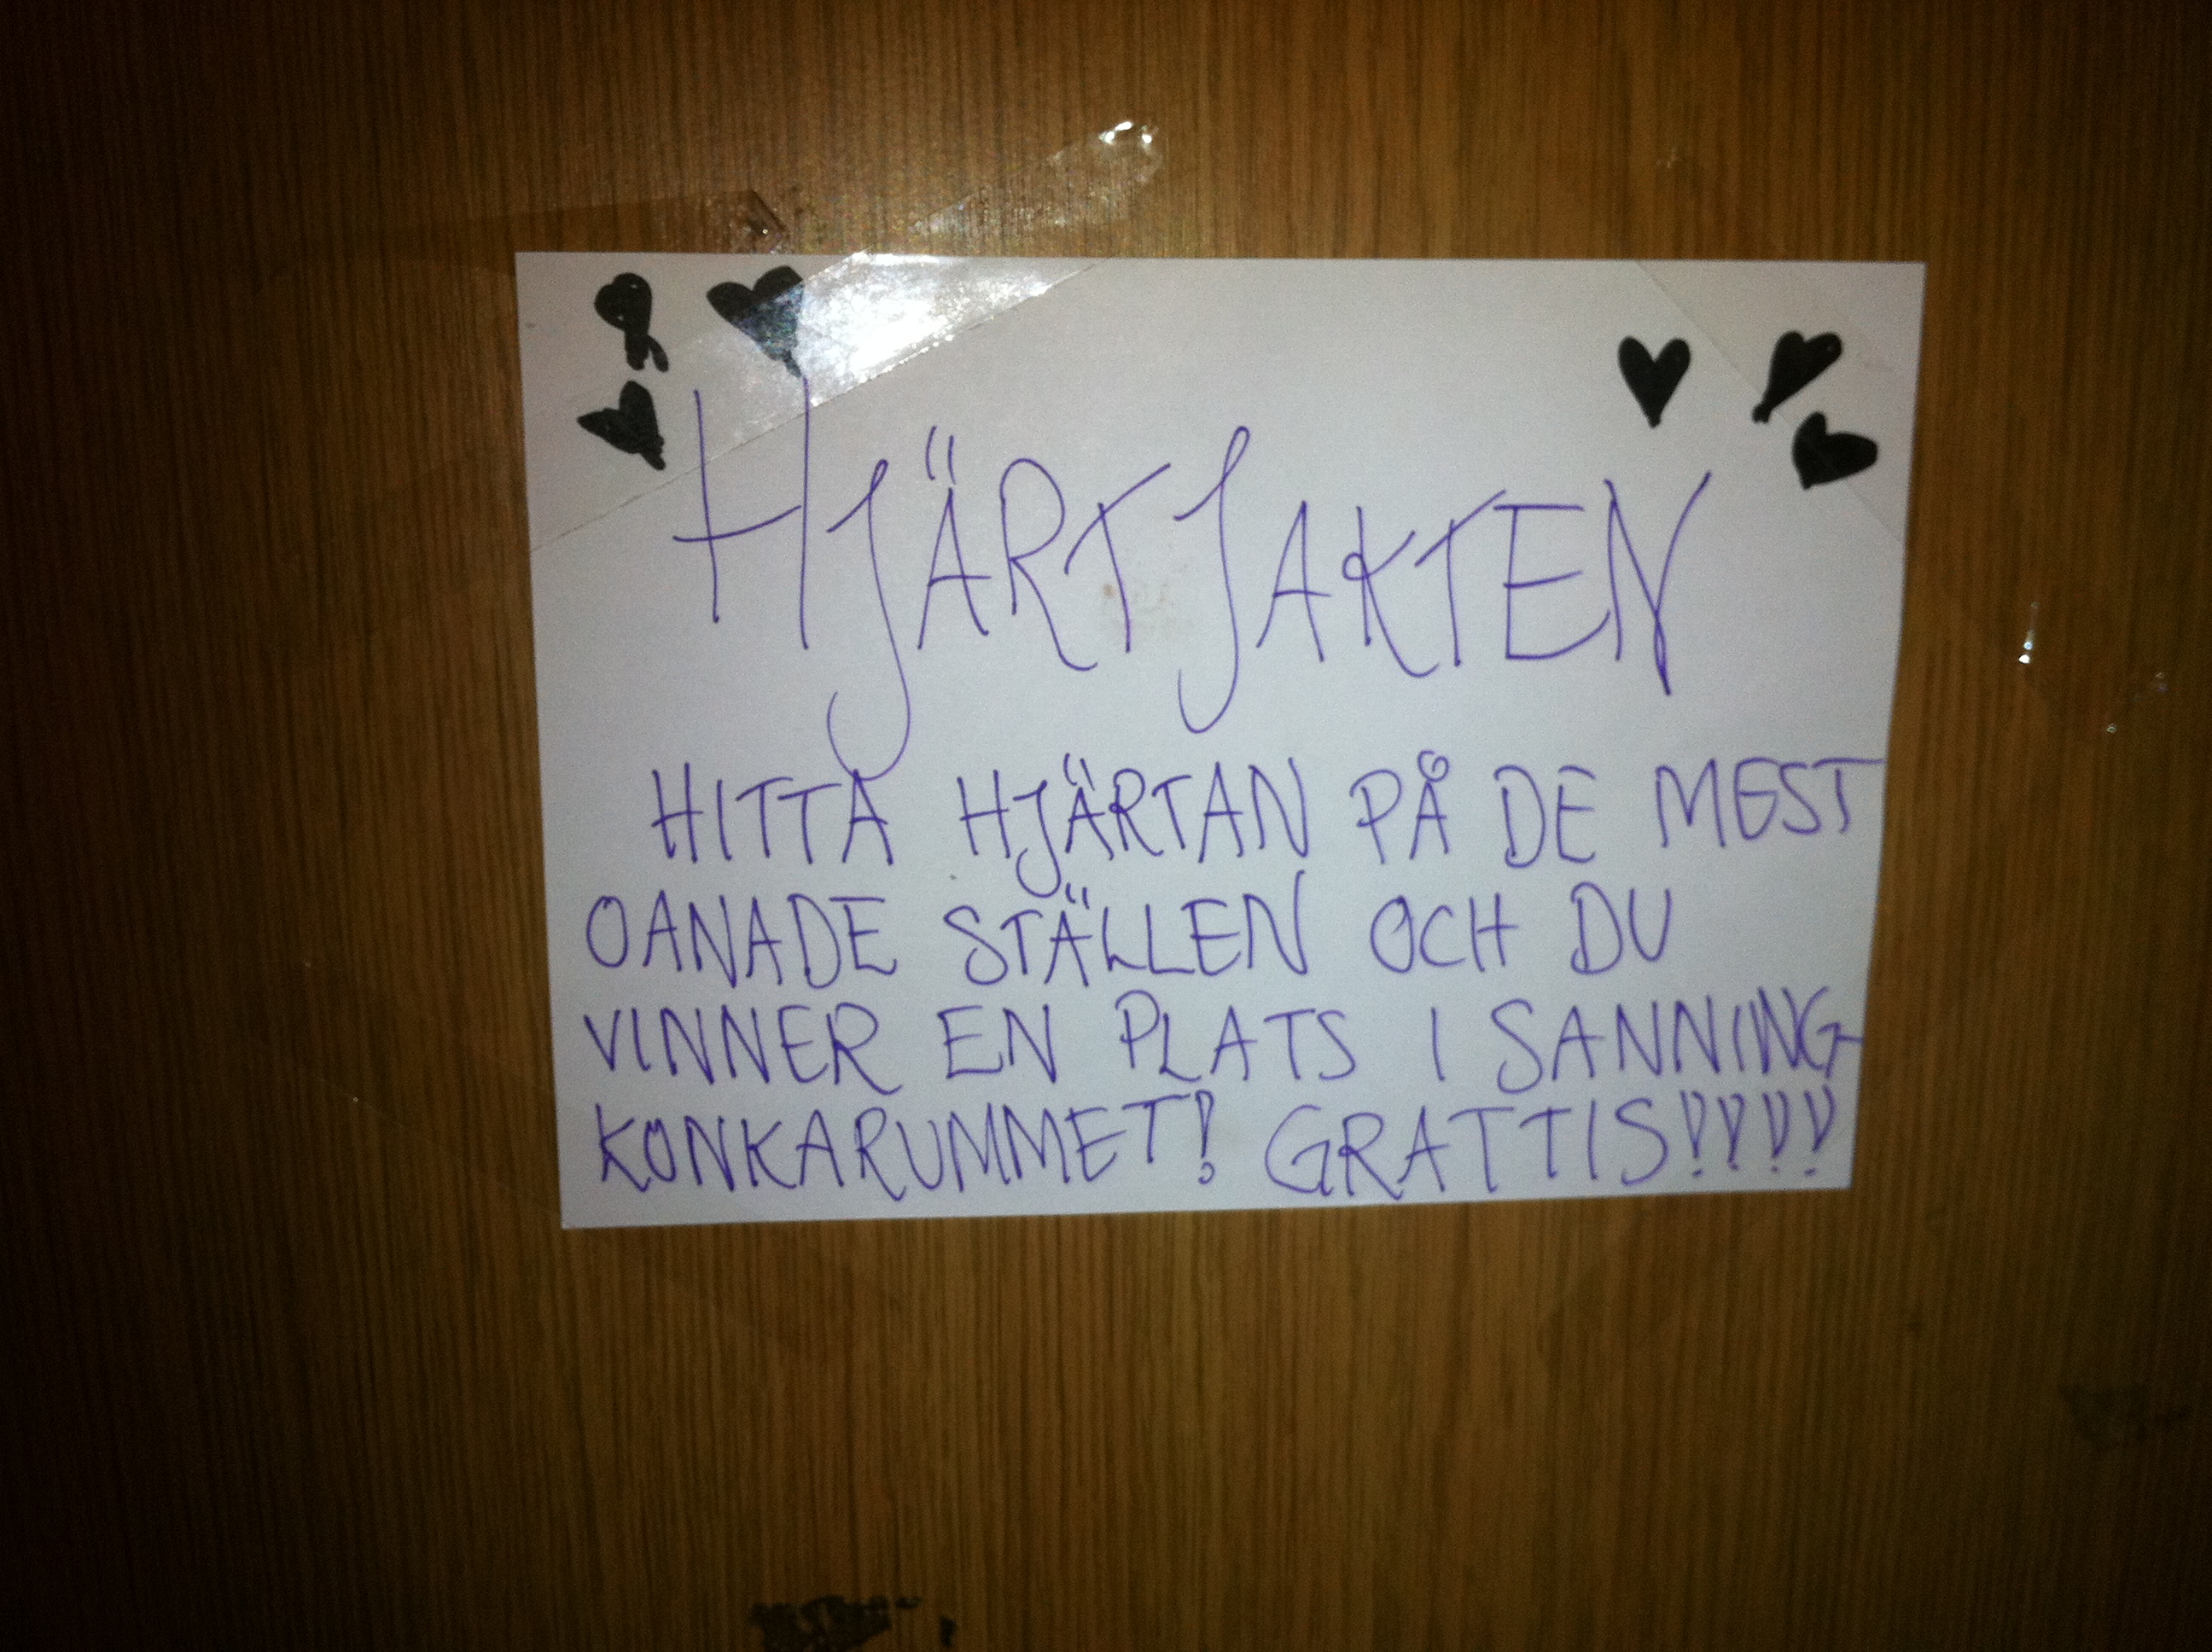 HJÄRTJAKTEN
HITTA HJÄRTAN PÅ DE MEST
OANADE STÄLLEN OCH DU
VINNER EN PLATS I SANNING-
KONKARUMMET! GRATTIS!!!!